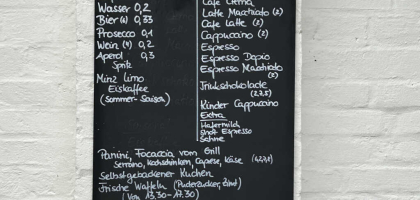 Wasser 0,2
Bier (4) 0,33
Prosecco 0,1
Wein (11) 0,2
Aperol 0,3
Spritz
Minz Limo
Eiskaffee
(Sommer-Saison)
Cafe Crema
Latte Macchiato (2)
Cafe Latte (2)
Cappuccino (2)
Espresso
Espresso Dopio
Espresso Macchiato
(2)
Trinkschokolade
(2,7,8)
Kinder Cappuccino
Extra
Hafermilch
Shot Espresso
Sahne
Panini, Focaccia vom Grill
Serrano, Kochschinken, Caprese, Käse
Selbstgebackener Kuchen
Frische Waffeln (Puderzucker, Zimt)
(Von 13.30-17.30)